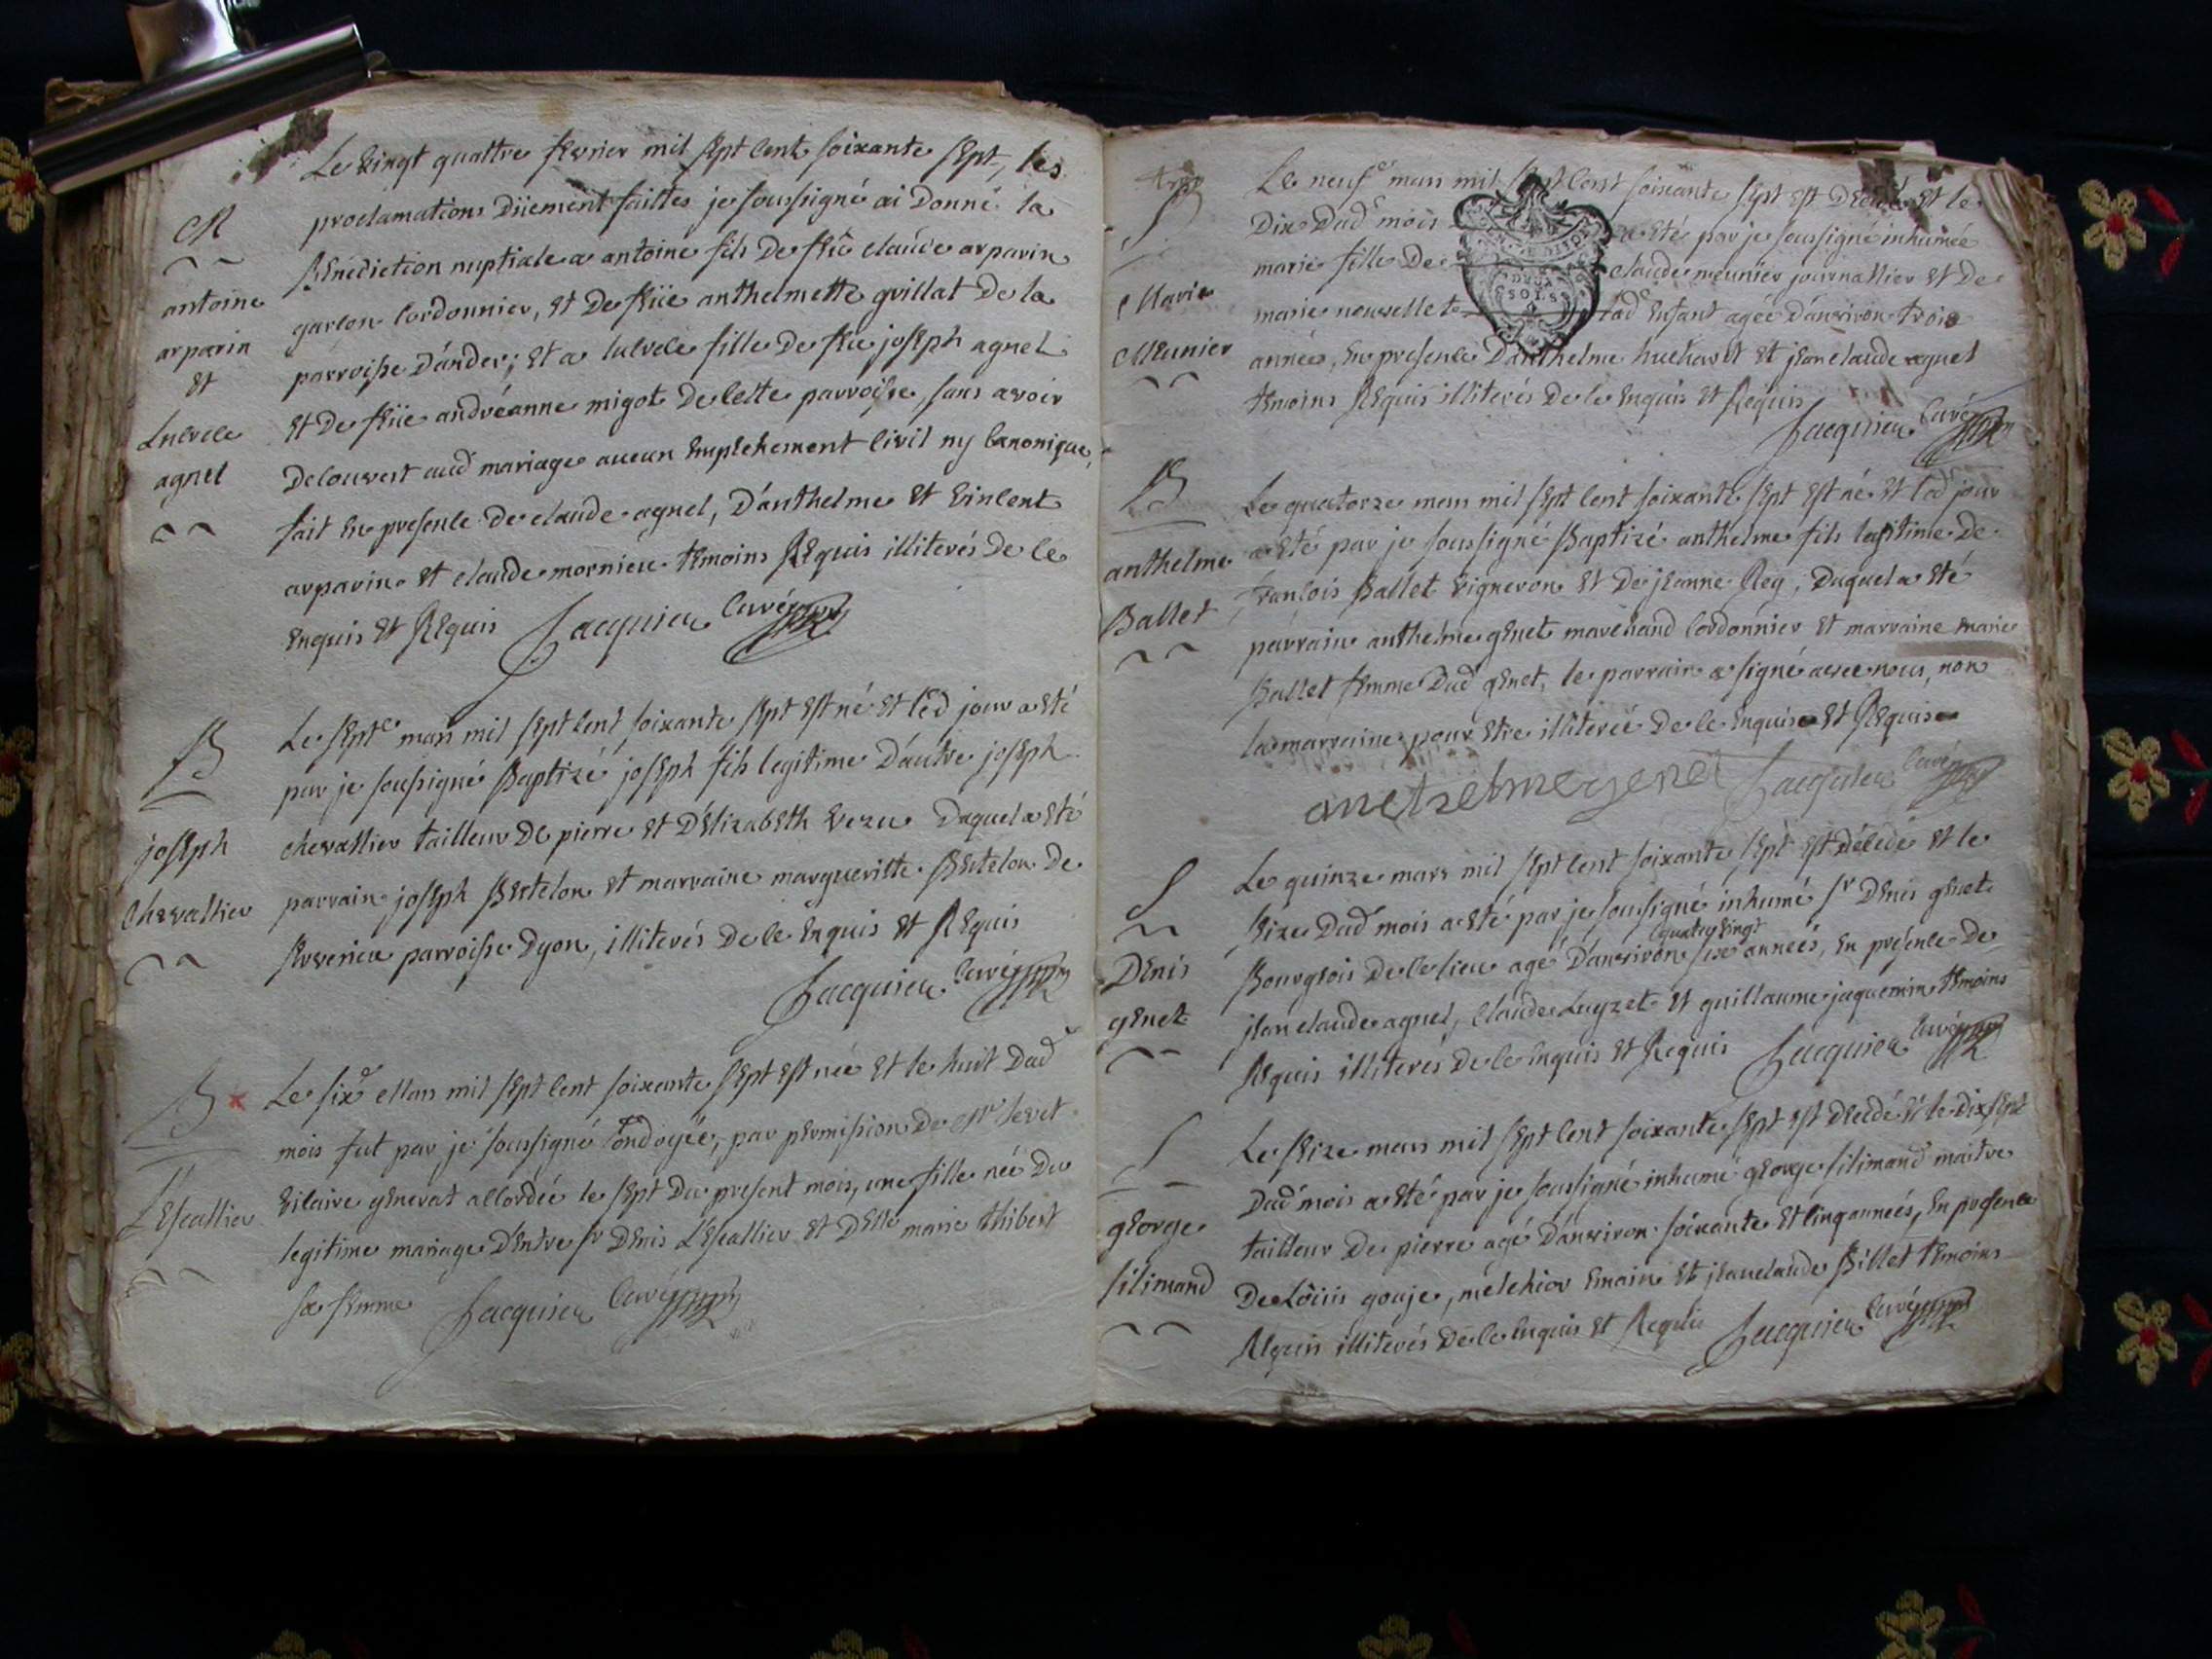 Le vingt quattre fevrier mil sept cent soixante sept, les
M
proclamations düement faittes je soussigné ai donné la
Benediction nuptiale a antoine fils de feu claude arparin
antoine
garçon cordonnier, et de feüe anthelmette grillat de la
arparin
parroisse d'andert; et a lucrece fille de feu joseph agnel
et
et de feüe andréanne migot de cette parroisse, sans avoir
Lucrece
decouvert aud mariage aucun empechement civil ny canonique,
agnel
fait en presence de claude agnel, d'anthelme et vincent
arparin et claude mornieu temoins Requis illiterés de ce
enquis et Requis Jacquier curé
B
Le septe mars mil sept cent soixante sept est né et led jour a eté
par je soussigné Baptizé joseph fils legitime d'autre joseph
joseph
chevallier tailleur de pierre et d'elizabeth vezu duquel a eté
Chevallier
parrain joseph Bertelon et marraine margueritte Bertelon de
serverieu parroisse dyon, illiterés de ce enquis et Requis
Jacquier curé
B
Le sixe Mars mil sept cent soixante sept est née et le huit dud
mois fut par je soussigné ondoyée, par permission de Mr
LEscallier
vicaire general accordée le sept du present mois, une fille née du
legitime mariage d'entre sr Denis LEscallier et Delle marie thibert
sa femme Jacquier curé
S
Le neufe mars mil sept cent soixante sept est decedé et le
Dix dud mois a eté par je soussigné inhumée
Marie
marie fille de claude meunier journallier et de
marie nouvellet lad enfant agée d'anviron trois
Meunier
années, en presence d'anthelme huchard et jean claude agnel
temoins Requis illiterés de ce enquis et Requis
Jacquier curé
B
Le quatorze mars mil sept cent soixante sept est né et led jour
anthelme
a eté par je soussigné Baptizé anthelme fils legitime de
françois Ballet vigneron et de jeanne Rey, duquel a eté
Ballet
parrain anthelme genet marchand cordonnier et marraine marie
Ballet femme dud genet, le parrain a signé avec nous, non
la marraine pour etre illiterée de ce enquise et Requise
anetzelmegenet Jacquier curé
S
Le quinze mars mil sept cent soixante sept est décédé et le
seize dud mois a eté par je soussigné inhumé sr Denis genet
quatrevingt
Denis
Bourgeois de ce lieu agé d'anviron six années, en présence de
genet
jean claude agnel, Claude Luyzet et guillaume jaquemin temoins
Requis illiterés de ce enquis et Requis Jacquier curé
S
Le seize mars mil sept cent soixante sept est decedé et le dix sept
dud mois a eté par je soussigné inhumé george silimand maitre
george
tailleur de pierre agé d'anviron soixante et cinq années, en presence
silimand
de Loüis gouje, melchior emain et jean claude Billet temoins
Requis illiterés de ce enquis et Requis Jacquier curé